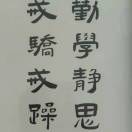 勤學靜思
戒驕戒躁